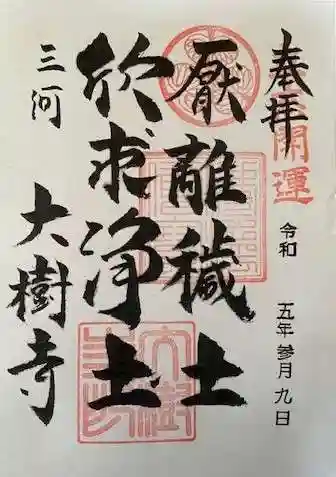 奉拝
開運
令和 五年参月九日
厭離穢土
欣求浄土
三河
大樹寺